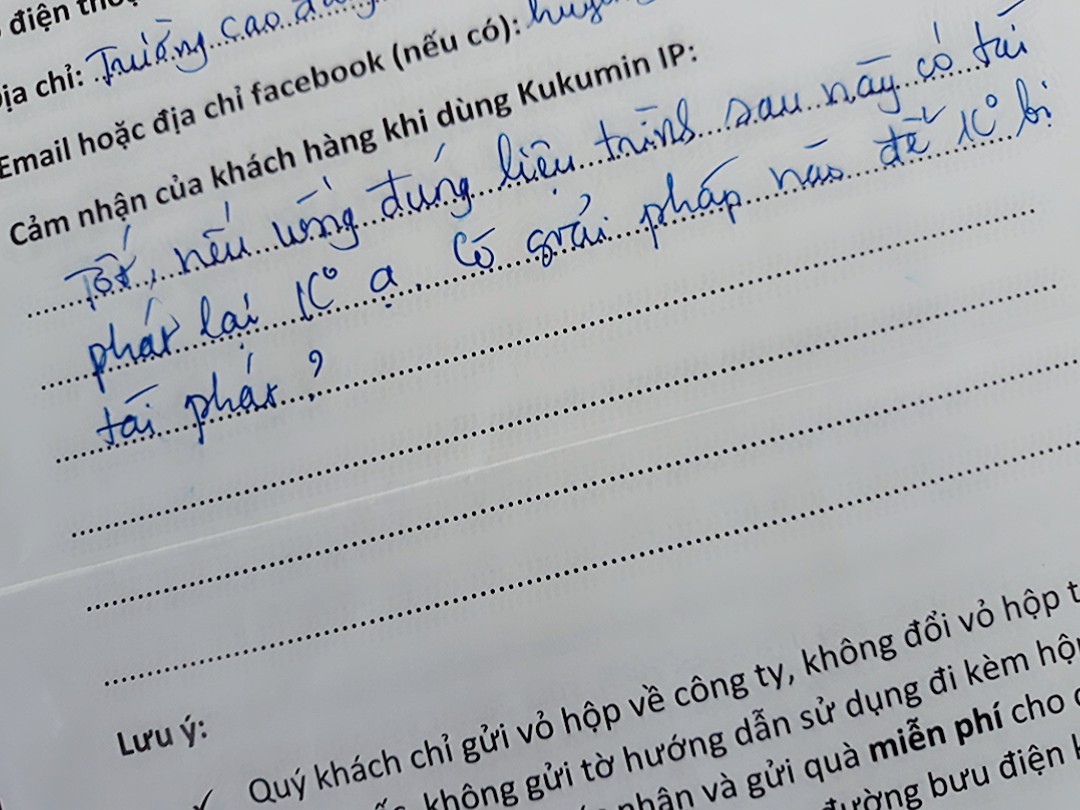 điện tho
ịa chỉ: Trường cao đ
Email hoặc địa chỉ facebook (nếu có): huy
Cảm nhận của khách hàng khi dùng Kukumin IP:
Tốt, nếu uống đúng liệu trình sau này có tái
phát lại K° ạ. Có giải pháp nào để K° bị
tái phát?
Lưu ý:
Quý khách chỉ gửi vỏ hộp về công ty, không đổi vỏ hộp t
không gửi tờ hướng dẫn sử dụng đi kèm hộ
nhận và gửi quà miễn phí cho
đường bưu điện